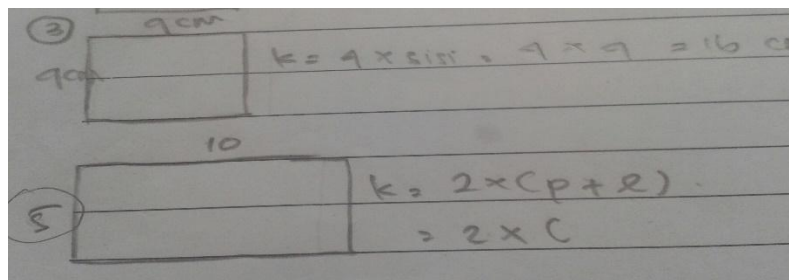 ③ 4cm
4cm k = 4 x sisi = 4 x 4 = 16 c
10
5 k = 2 x (p + l)
= 2 x (